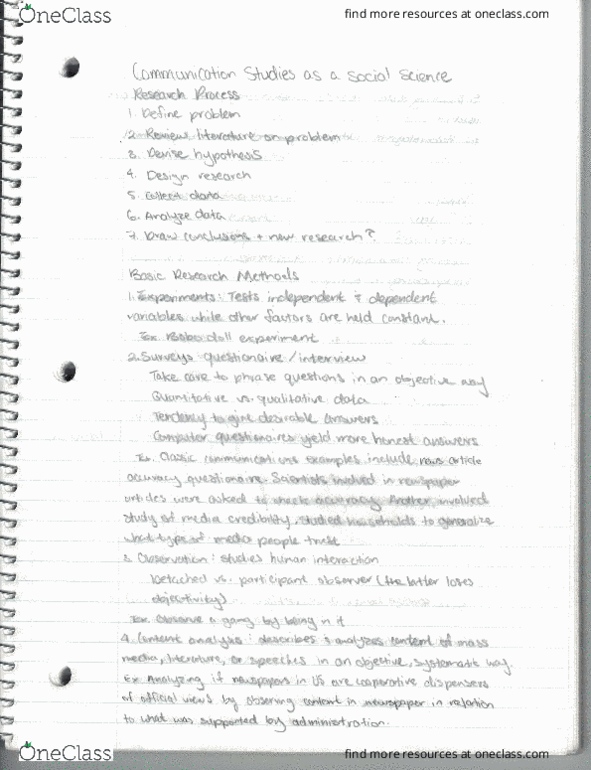 OneClass
find more resources at oneclass.com
Communication Studies as a Social Science
Research Process
1. Define problem
2. Review literature on problem
3. Devise hypothesis
4. Design research
5. Collect data
6. Analyze data
7. Draw conclusions + new research?
Basic Research Methods
1. Experiments: Tests independent & dependent
variables while other factors are held constant.
Ex. Bobo doll experiment
2. Surveys questionaire/interview
Take care to phrase questions in an objective way
Quantitative vs. qualitative data
Tendency to give desirable answers
Computer questionaires yield more honest answers
Ex. Classic communications examples include news article
accuracy questionaire. Scientists involved in newspaper
articles were asked to check accuracy. Another involved
study of media credibility, studied households to generalize
what type of media people trust
3. Observation: studies human interaction
Detached vs. participant observer (the latter loses
objectivity)
Ex. Observe a gang by being in it
4. Content analysis: describes & analyzes content of mass
media, literature, or speeches in an objective, systematic way.
Ex. Analyzing if newspapers in US are cooperative dispensers
of official views by observing content in newspaper in relation
to what was supported by administration.
OneClass
find more resources at oneclass.com